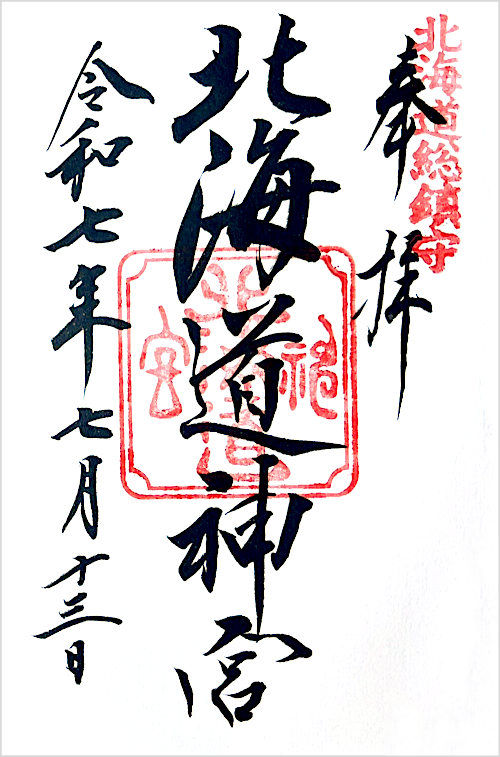 北海道総鎮守
奉拝
北海道神宮
令和七年七月十三日